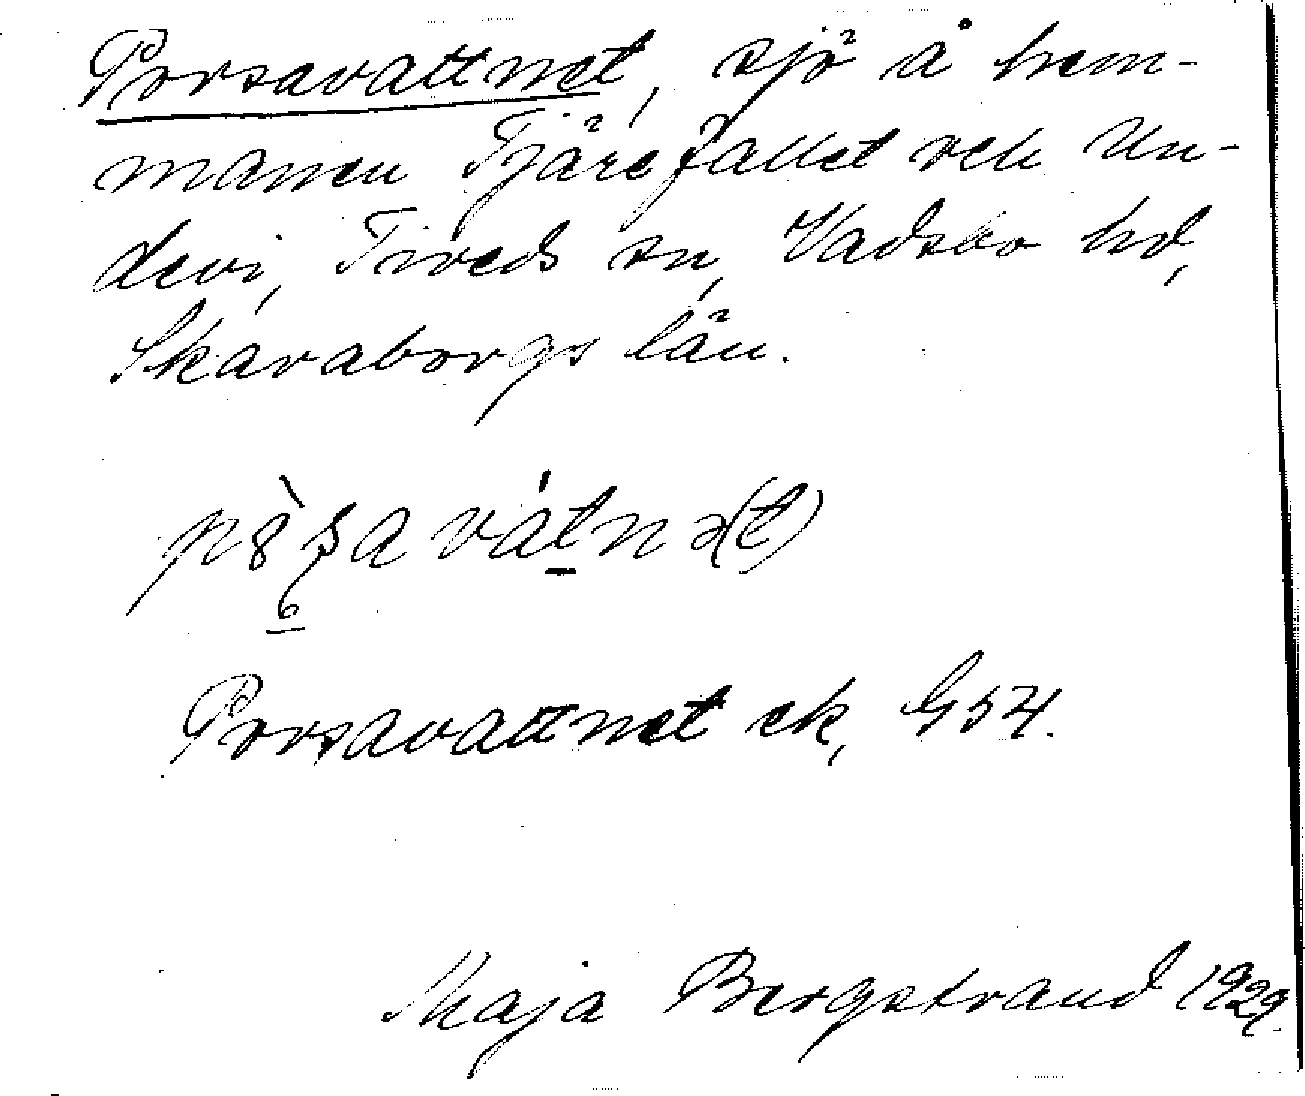 Porsavattnet, sjö å hem-
manen Tjärefallet och Un-
devi, Tiveds sn, Vadsbo hd,
Skaraborgs län.
Porsavattnet ek, G54.
Maja Bergstrand 1929.